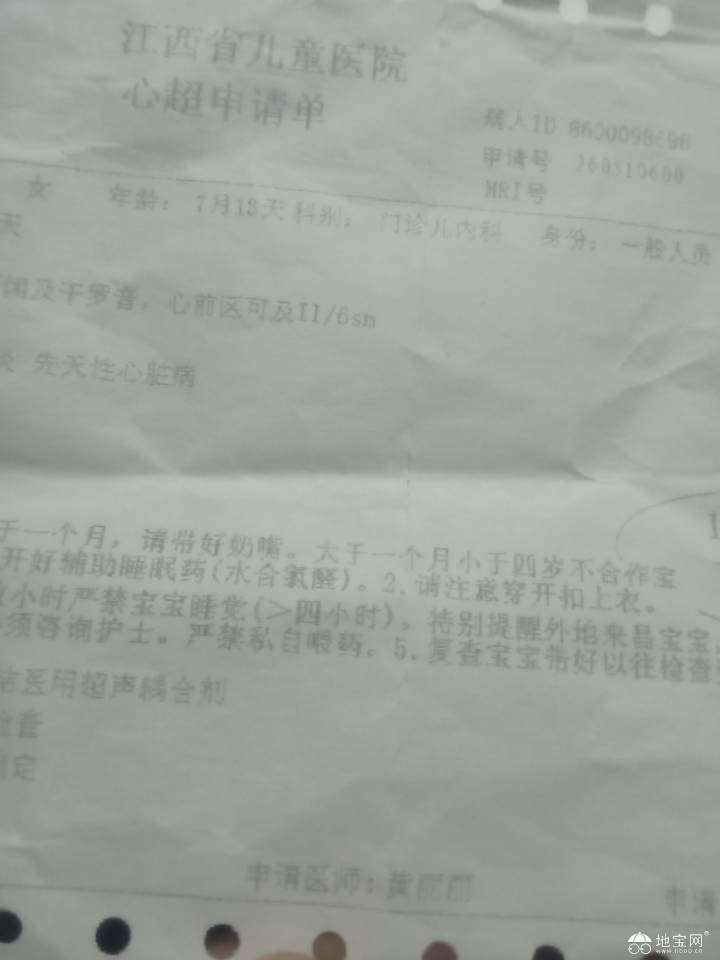 江西省儿童医院
心超申请单
病人ID 8600098698
申请号 260510600
MRI号
女 年龄： 7月13天 科别： 门诊儿内科 身份： 一般人员
天
闻及干罗音，心前区可及II/6sm
炎 先天性心脏病
于一个月，请带好奶嘴。大于一个月小于四岁不合作宝
开好辅助睡眠药(水合氯醛)。2.请注意穿开扣上衣。
小时严禁宝宝睡觉(>四小时)，特别提醒外地来昌宝宝
须咨询护士。严禁私自喂药。5.复查宝宝带好以往检查
洁医用超声耦合剂
检查
测定
申请医师：黄丽
申请
地宝网